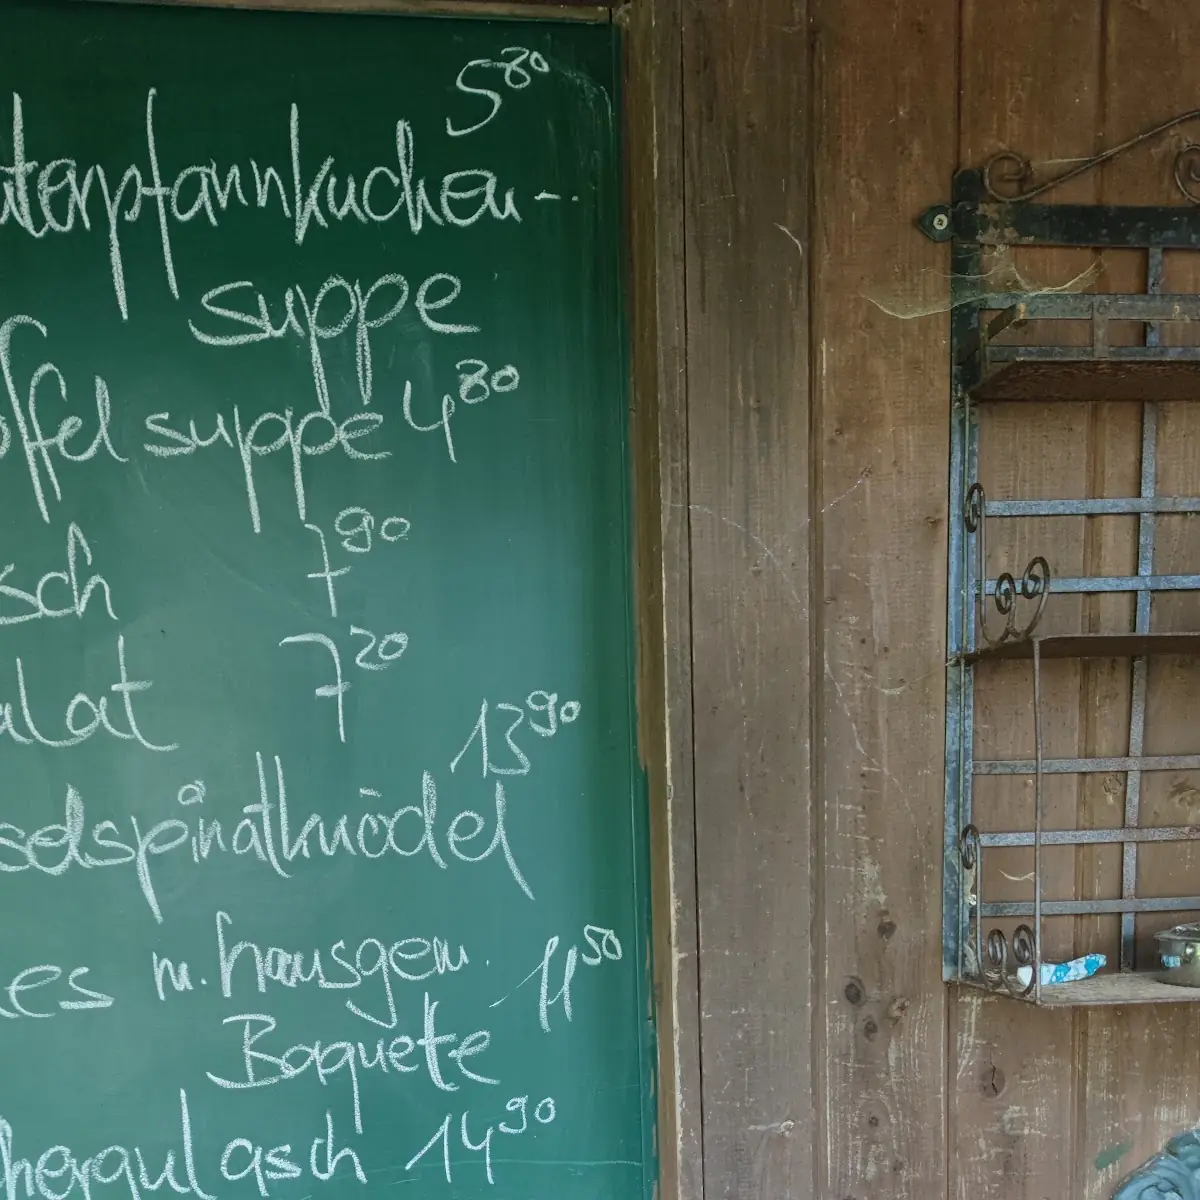 5 80
uterpfannkuchen-
suppe
offel suppe 4 80
sch 7 90
alat 7 20
13 90
selspinatknödel
es m. hausgem. 11 50
Baquete
hergulasch 14 90